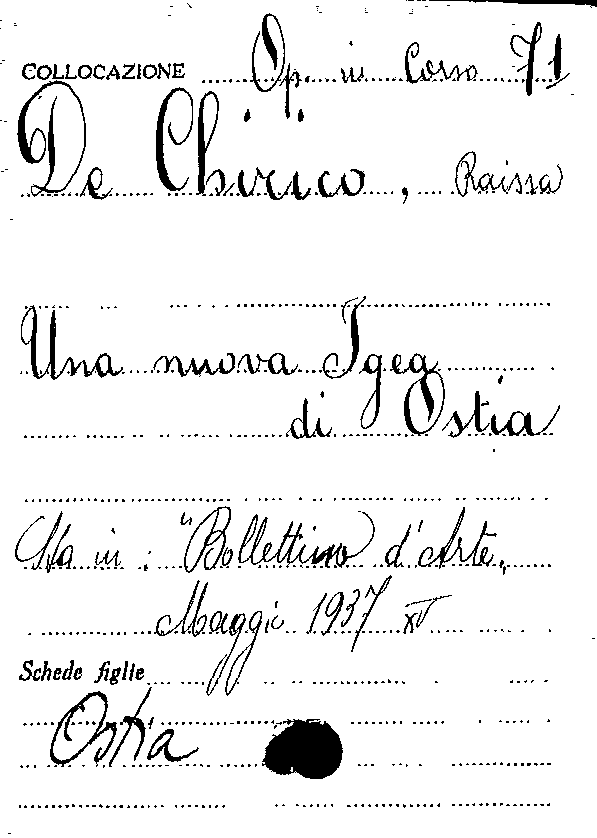 COLLOCAZIONE Op. in Corso 71
De Chirico, Raissa
Una nuova Igea
di Ostia
Sta in: "Bollettino d'Arte,
Maggio 1937 XV
Schede figlie
Ostia